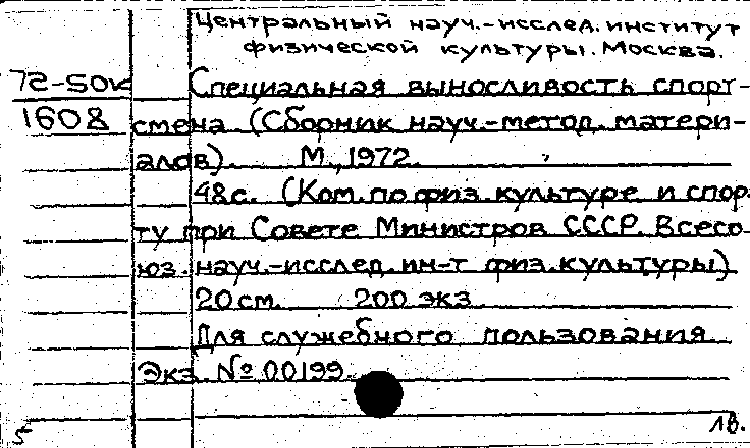 Центральный науч.-исслед. институт
физической культуры. Москва.
72-50к Специальная выносливость спорт-
1608 смена (Сборник науч.-метод. матери-
алов). М., 1972.
48с. (Ком. по физ. культуре и спор-
ту при Совете Министров СССР. Всесо-
юз. науч.-исслед. ин-т физ. культуры)
20 см. 200 экз.
Для служебного пользования
Экз. № 00199.
1в.